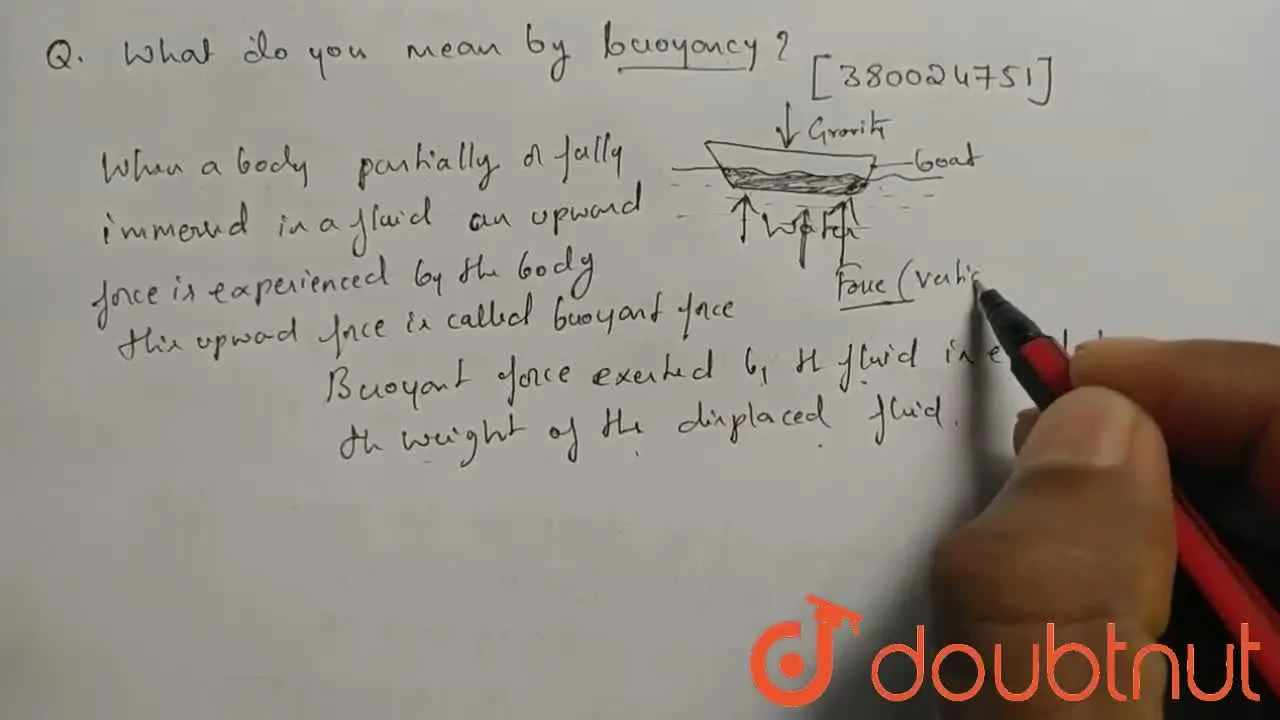 Q. What do you mean by buoyancy?
[380024751]
When a body partially or fully
immersed in a fluid an upward
force is experienced by the body
this upward force is called buoyant force
Buoyant force exerted by the fluid is
the weight of the displaced fluid.
Gravity
boat
Water
Force (vertic
doubtnut